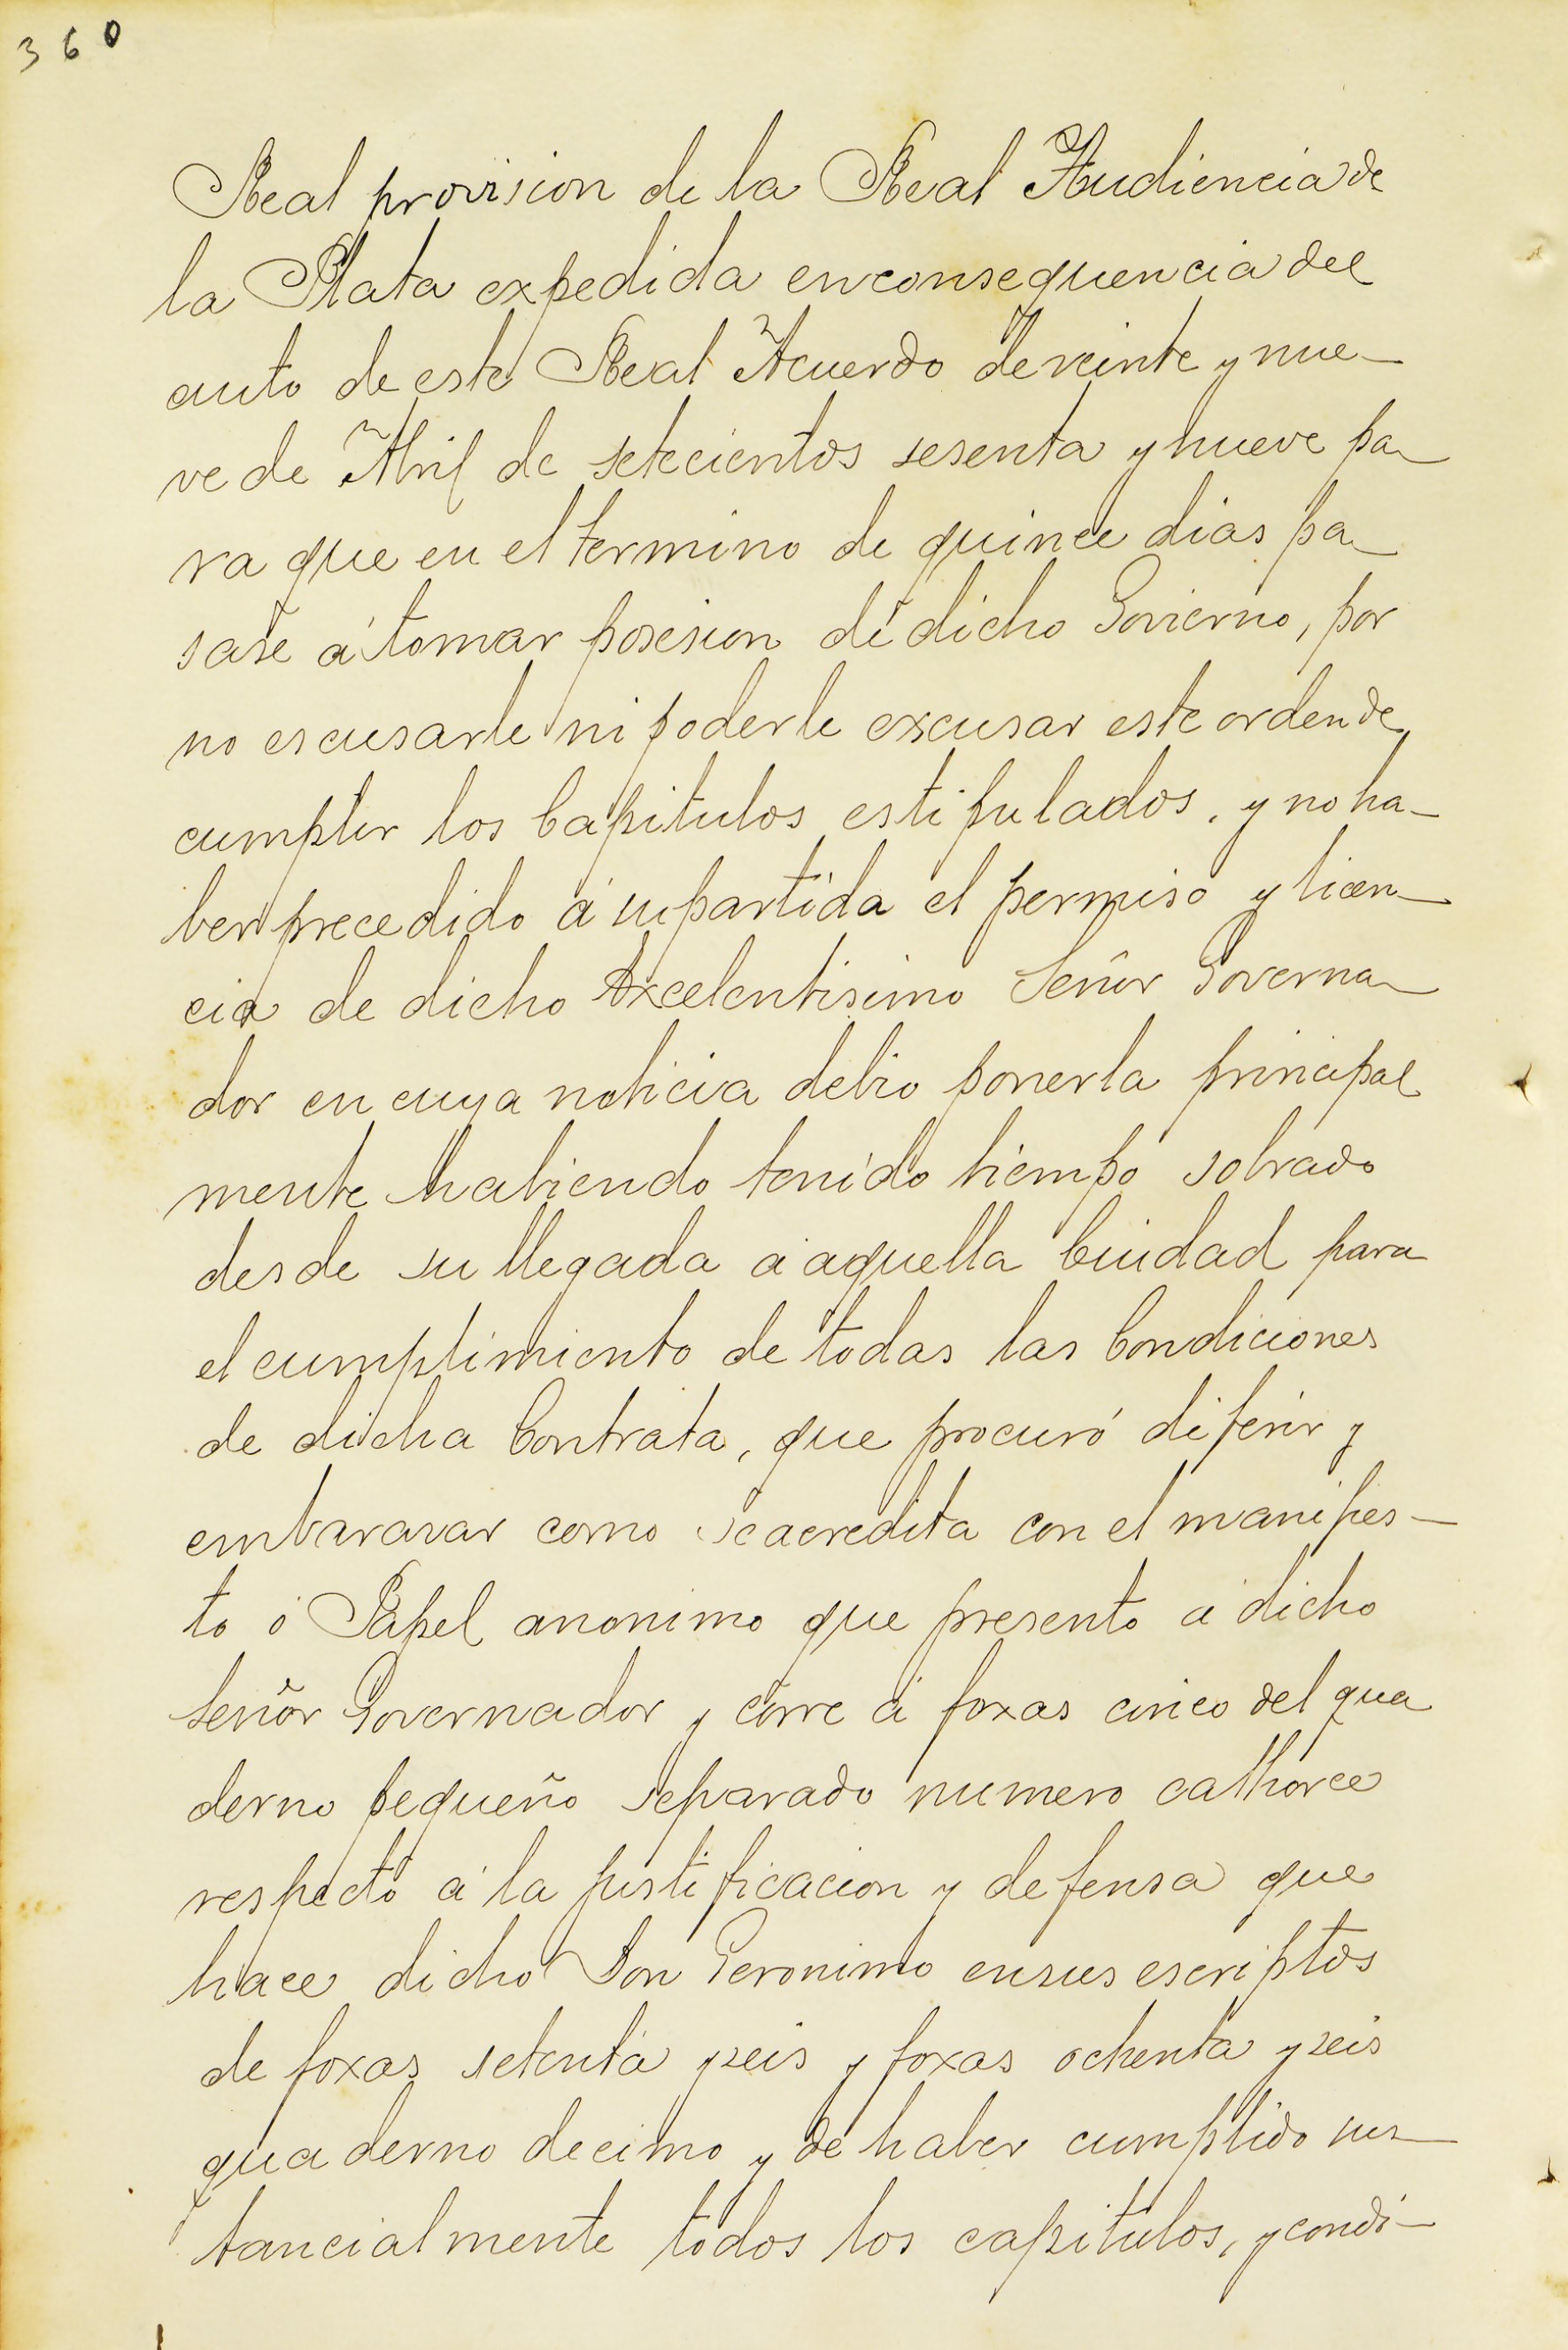 360
Real provision de la Real Audiencia de
la Plata expedida en consequencia del
auto de este Real Acuerdo de veinte y nue-
ve de Abril de setecientos sesenta y nueve pa-
ra que en el termino de quince dias pa-
sase á tomar posesion de dicho Govierno, por
no escusarle ni poderle excusar este orden de
cumplir los Capitulos estipulados, y no ha-
ber precedido á su partida el permiso y licen-
cia de dicho Excelentisimo Señor Governa-
dor en cuya noticia debio ponerla principal
mente habiendo tenido tiempo sobrado
desde su llegada á aquella Ciudad para
el cumplimiento de todas las Condiciones
de dicha Contrata, que procuró diferir y
embarazar como se acredita con el manifies-
to ó Papel anonimo que presento á dicho
Señor Governador y corre á foxas cinco del qua
derno pequeño separado numero cathorce
respecto á la justificacion y defensa que
hace dicho Don Geronimo en sus escriptos
de foxas setenta y seis y foxas ochenta y seis
quaderno decimo y de haber cumplido sus-
tancialmente todos los capitulos, y condi-